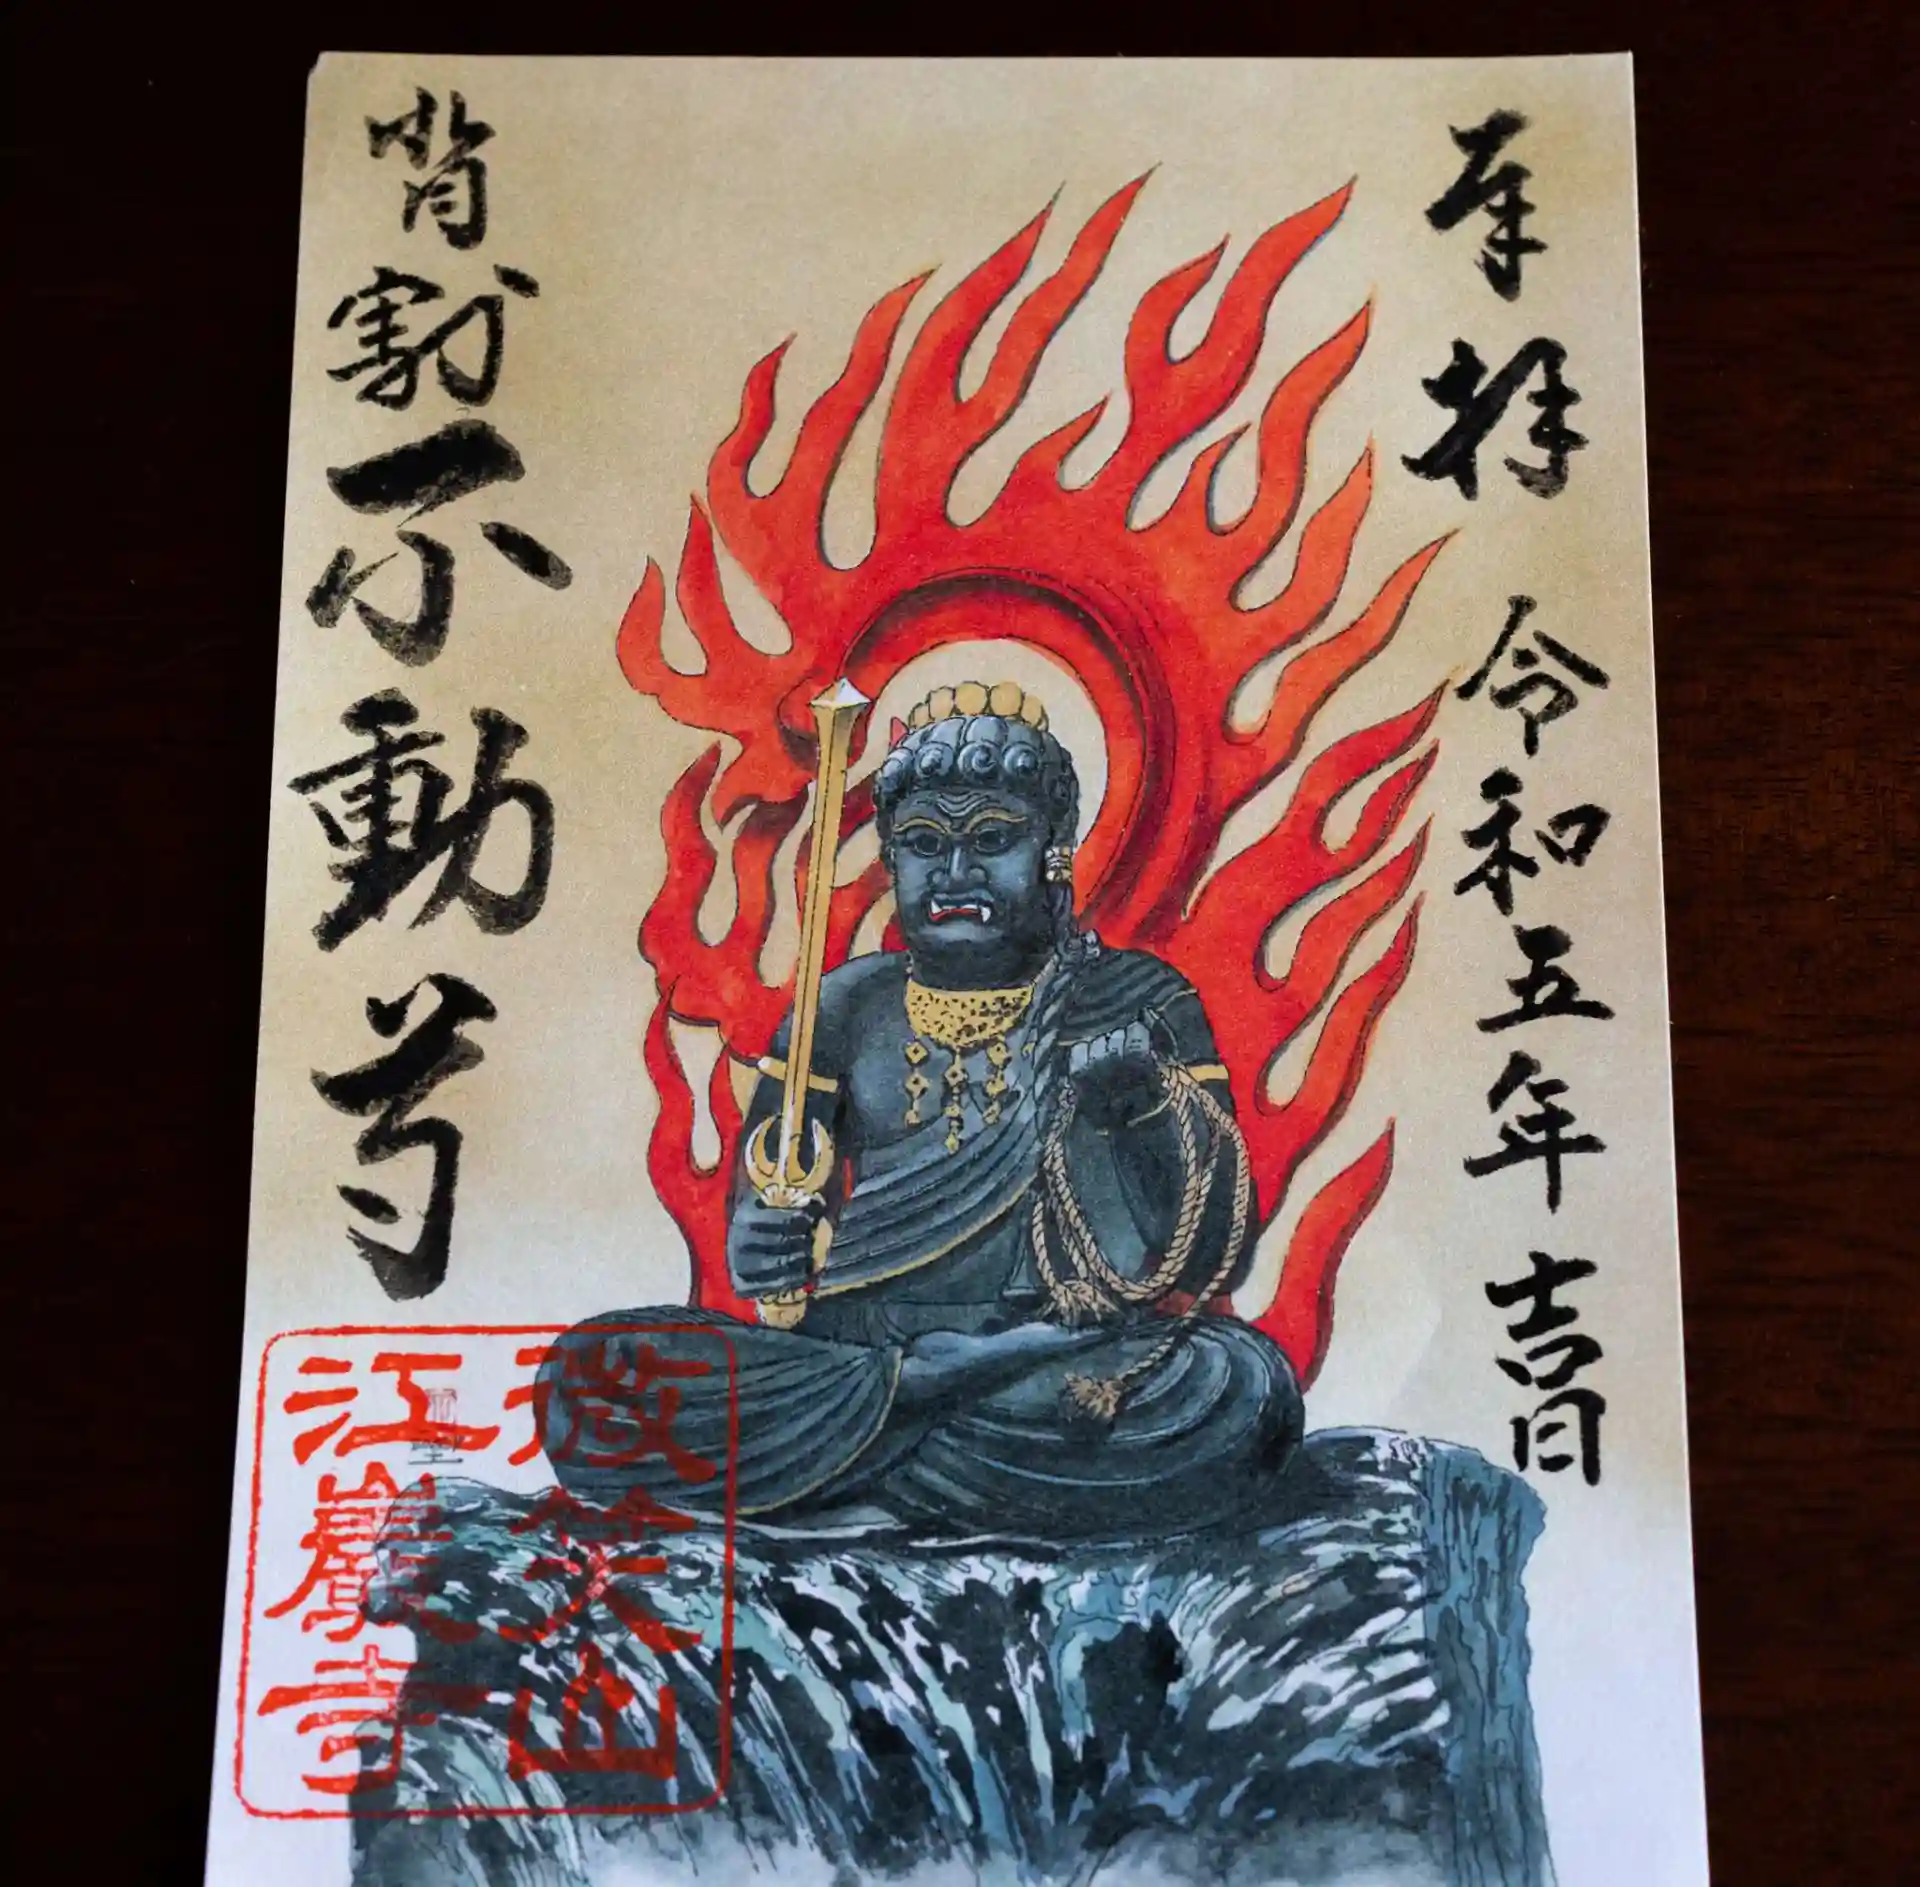 奉拝 令和五年 吉日
背割不動尊
微笑山
江巖寺